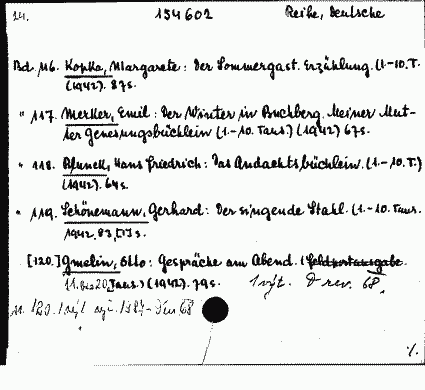 24. 154602 Reihe, Deutsche
Bd. 116. Kopka, Margarete: Der Sommergast. Erzählung. (1.-10. T.
(1942). 87s.
" 117. Merker, Emil: Der Winter in Buchberg. Meiner Mut-
ter Genesungsbüchlein (1.-10. Taus.) (1942) 67s.
" 118. Blunck, Hans Friedrich: Das Andachtsbüchlein. (1.-10. T.)
(1942). 64s.
" 119. Schönemann, Gerhard: Der singende Stahl. (1.-10. Taus.
1942. 83, [1] s.
[120.] Gmelin, Otto: Gespräche am Abend. (Feldpostausgabe.
11. bis 20. Taus.) (1942). 79s. rev. 68.
120. 68
%.